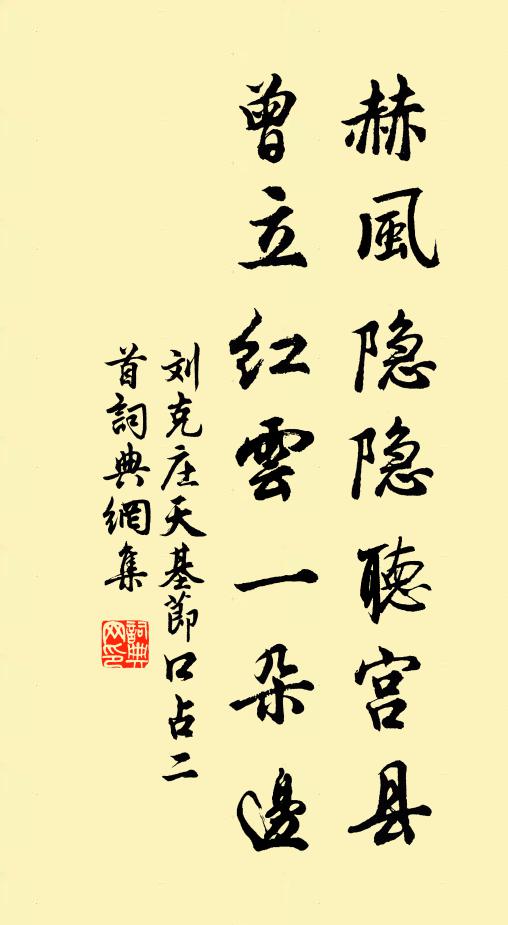 赫風隐隐聽宫县
曾立红雲一朵邊
刘克庄天基節口占二
首詞典網集
詞典網印